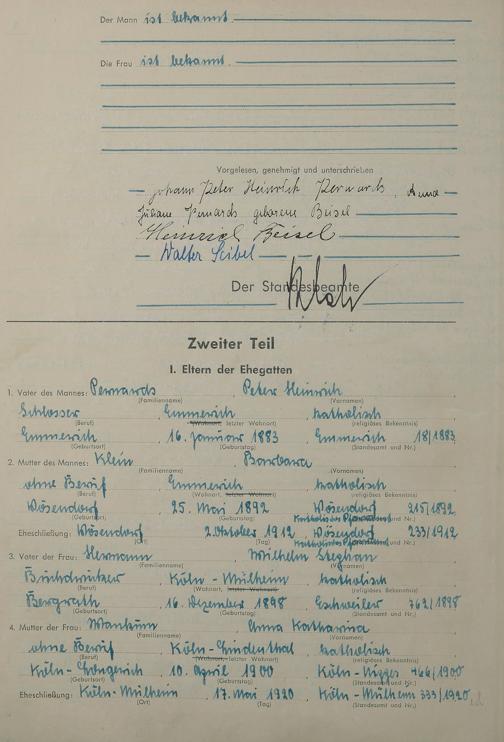 Der Mann ist bekannt
Die Frau ist bekannt.
Vorgelesen, genehmigt und unterschrieben
Johann Peter Heinrich Pernards, Anna
Juliane Pernards geborene Beisel
Heinrich Beisel
Walter Seibel
Der Standesbeamte
Zweiter Teil
I. Eltern der Ehegatten
1. Vater des Mannes: Pernards, Peter Heinrich
(Familienname) (Vornamen)
Schlosser, Emmerich, katholisch
(Beruf) (Wohnort, letzter Wohnort) (religiöses Bekenntnis)
Emmerich, 16. Januar 1883, Emmerich 18/1883
(Geburtsort) (Geburtstag) (Standesamt und Nr.)
2. Mutter des Mannes: Klein, Barbara
(Familienname) (Vornamen)
ohne Beruf, Emmerich, katholisch
(Beruf) (Wohnort, letzter Wohnort) (religiöses Bekenntnis)
Wösendorf, 25. Mai 1892, Wösendorf 215/1892
(Geburtsort) (Geburtstag) Katholisches Pfarramt und Nr.)
Eheschließung: Wösendorf, 2. Oktober 1912, Wösendorf 233/1912
(Ort) (Tag) Katholisches Pfarramt und Nr.)
3. Vater der Frau: Hermann, Wilhelm Stephan
(Familienname) (Vornamen)
Buchdrucker, Köln-Mülheim, katholisch
(Beruf) (Wohnort, letzter Wohnort) (religiöses Bekenntnis)
Bergrath, 16. Dezember 1898, Eschweiler 762/1898
(Geburtsort) (Geburtstag) (Standesamt und Nr.)
4. Mutter der Frau: Anna Katharina
(Familienname) (Vornamen)
ohne Beruf, Köln-Lindenthal, katholisch
(Beruf) (Wohnort, letzter Wohnort) (religiöses Bekenntnis)
Köln-Longerich, 10. April 1900, Köln-Nippes 466/1900
(Geburtsort) (Geburtstag) (Standesamt und Nr.)
Eheschließung: Köln-Mülheim, 17. Mai 1920, Köln-Mülheim 333/1920
(Ort) (Tag) (Standesamt und Nr.)